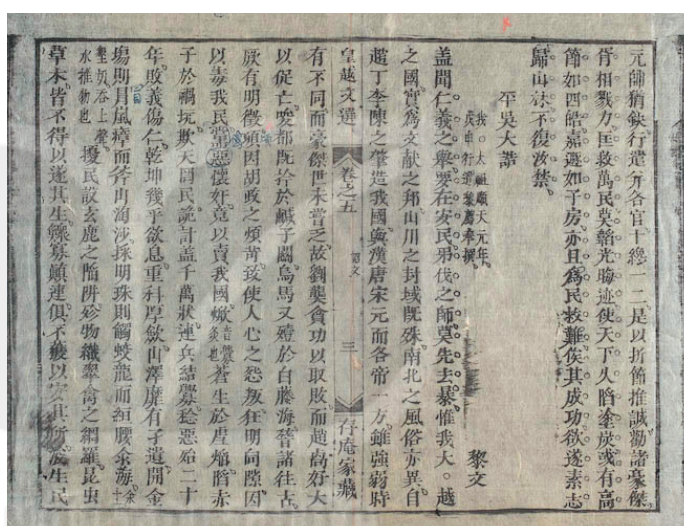 元帥猶缺行遣亦各官十纔一二是以折節推誠勸諸豪傑
胥相戮力匡救萬民莫韜光晦迹使天下久陷塗炭或有高
節如四皓嘉遯如子房亦且為民救難俟其成功欲遂素志
歸山林不復汝禁
平吳大誥
我太祖順天元年
戊申行遣黎廌奉撰
黎文
盖聞仁義之舉要在安民弔伐之師莫先去暴惟我大越
之國實為文獻之邦山川之封域既殊南北之風俗亦異自
趙丁李陳之肇造我國與漢唐宋元而各帝一方雖強弱時
皇越文選 卷之五 誥文 三 存庵家藏
有不同而豪傑世未嘗乏故劉龑貪功以取敗而趙卨好大
以促亡唆都既擒於鹹子關烏馬又殪於白藤海嵇諸往古
厥有明徵頃因胡政之煩苛致使人心之怨叛狂明向隙因
以毒我民惡黨懷奸竟以賣我國焮蒼生於虐焰陷赤
子於禍坑欺天罔民詭計盖千萬狀連兵結釁稔惡殆二十
年敗義傷仁乾坤幾乎欲息重科厚歛山澤靡有孑遺開金
場則冐嵐瘴而斧山淘沙採明珠則觸蛟龍而絙腰汆海
擾民設玄鹿之陷阱殄物織翠禽之網羅昆虫
草木皆不得以遂其生鰥寡顛連俱不獲以安其所浚生民